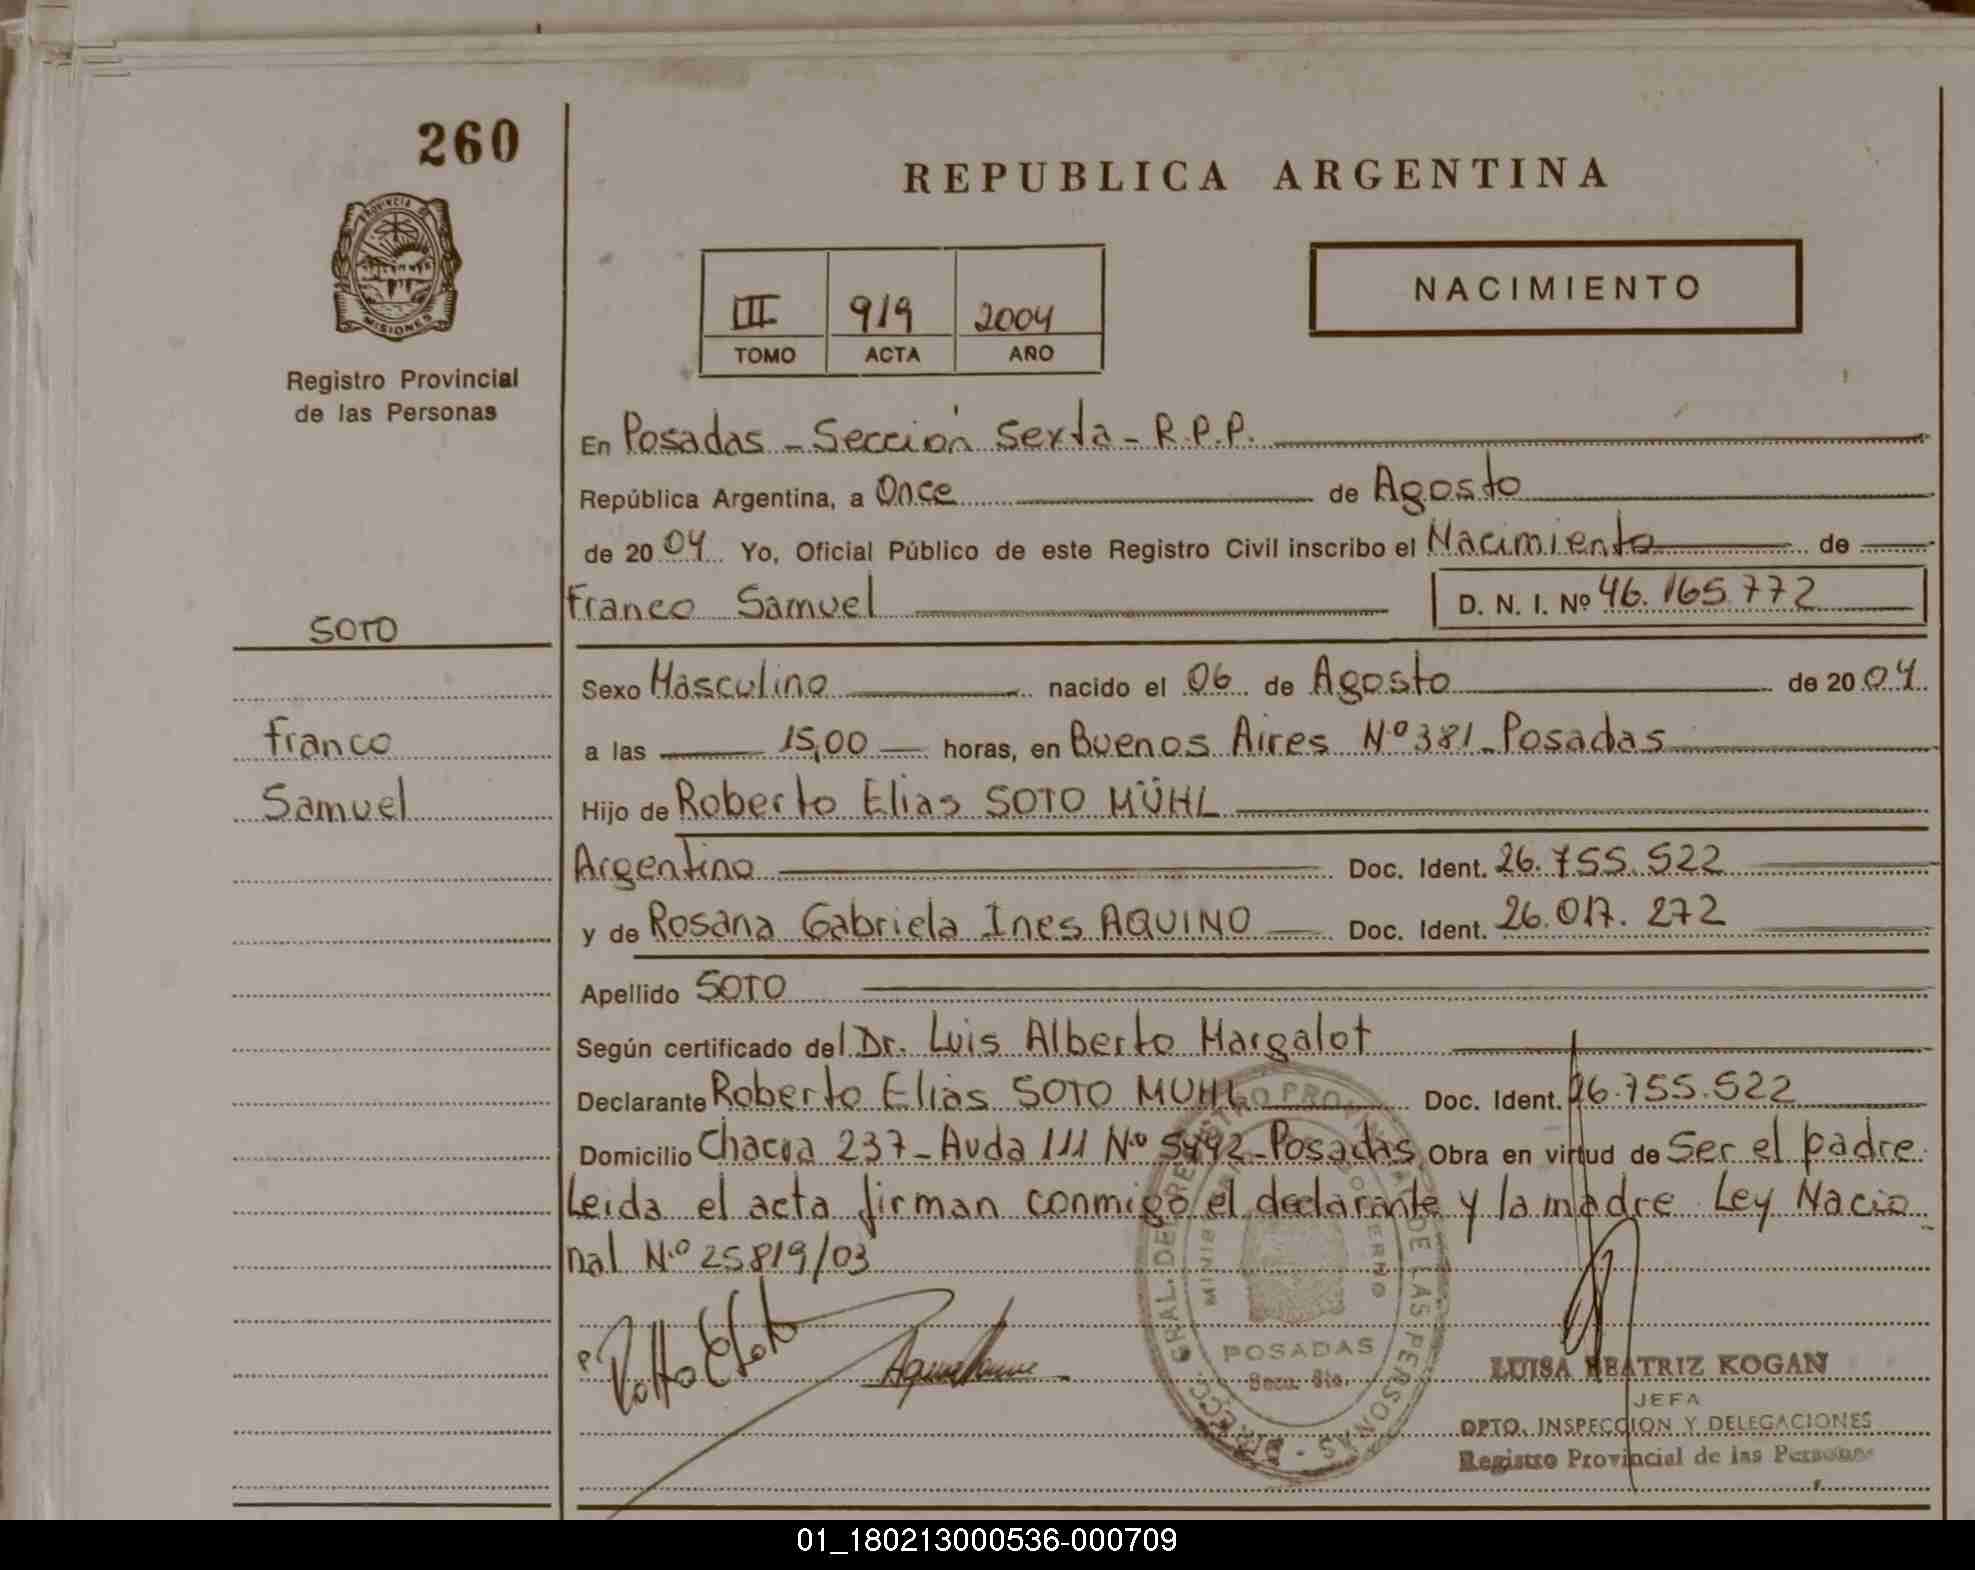 260
REPUBLICA ARGENTINA
PROVINCIA DE
MISIONES
Registro Provincial
de las Personas
III 919 2004
TOMO ACTA AÑO
NACIMIENTO
En Posadas - Sección Sexta - R.P.P.
República Argentina, a Once de Agosto
de 2004 Yo, Oficial Público de este Registro Civil inscribo el Nacimiento de
Franco Samuel D. N. I. Nº 46.165.772
SOTO
Franco
Samuel
Sexo Masculino nacido el 06 de Agosto de 2004
a las 15,00 horas, en Buenos Aires Nº 381 - Posadas
Hijo de Roberto Elias SOTO MÜHL
Argentino Doc. Ident. 26.755.522
y de Rosana Gabriela Ines AQUINO Doc. Ident. 26.017.272
Apellido SOTO
Según certificado del Dr. Luis Alberto Margalot
Declarante Roberto Elias SOTO MUHL Doc. Ident. 26.755.522
Domicilio Chacra 237 - Avda 111 Nº 5492 - Posadas Obra en virtud de Ser el padre
Leida el acta firman conmigo el declarante y la madre Ley Nacio
nal Nº 25819/03
DIRECC. GRAL. DEL REGISTRO PROVINCIAL DE LAS PERSONAS
MINISTERIO GOBIERNO
POSADAS
Secc. 6ta.
LUISA BEATRIZ KOGAN
JEFA
DPTO. INSPECCION Y DELEGACIONES
Registro Provincial de las Personas
01_180213000536-000709